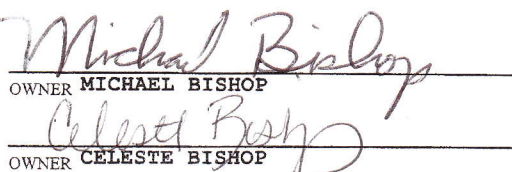 Michael Bishop
OWNER MICHAEL BISHOP
Celeste Bishop
OWNER CELESTE BISHOP